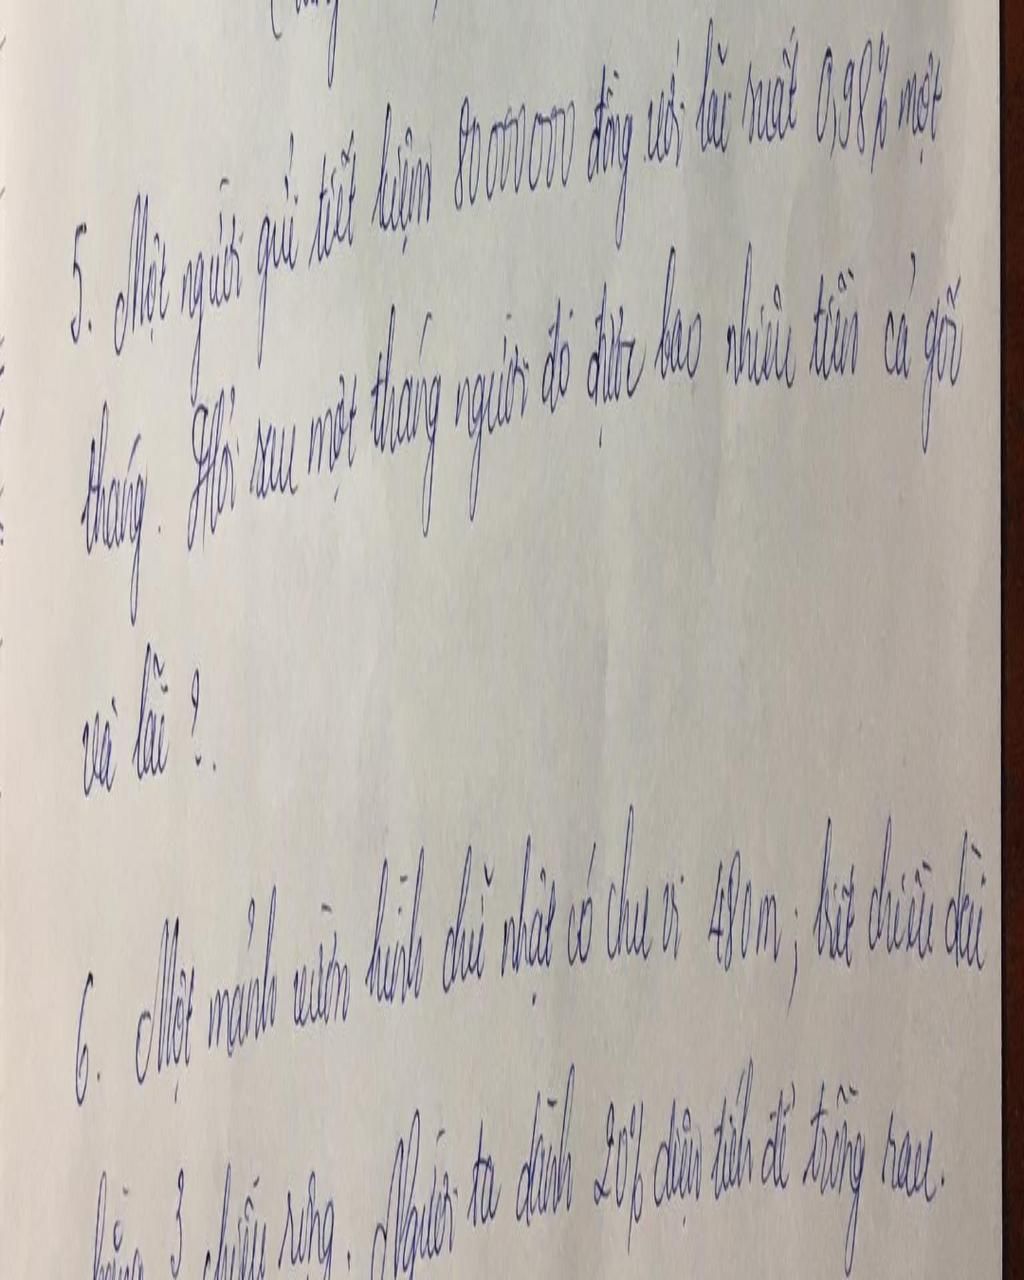 5. Một người gửi tiết kiệm 80000000 đồng với lãi suất 0,98% một
tháng. Hỏi sau một tháng người đó được bao nhiêu tiền cả gốc
và lãi?
6. Một mảnh vườn hình chữ nhật có chu vi 480m; biết chiều dài
bằng 3 chiều rộng. Người ta dành 20% diện tích để trồng rau.